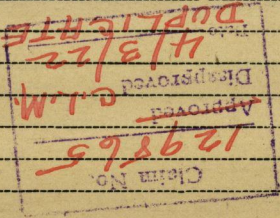 Claim No.
129865
Approved
C.I.M.
Disapproved
4/3/22
File
DUPLICATE